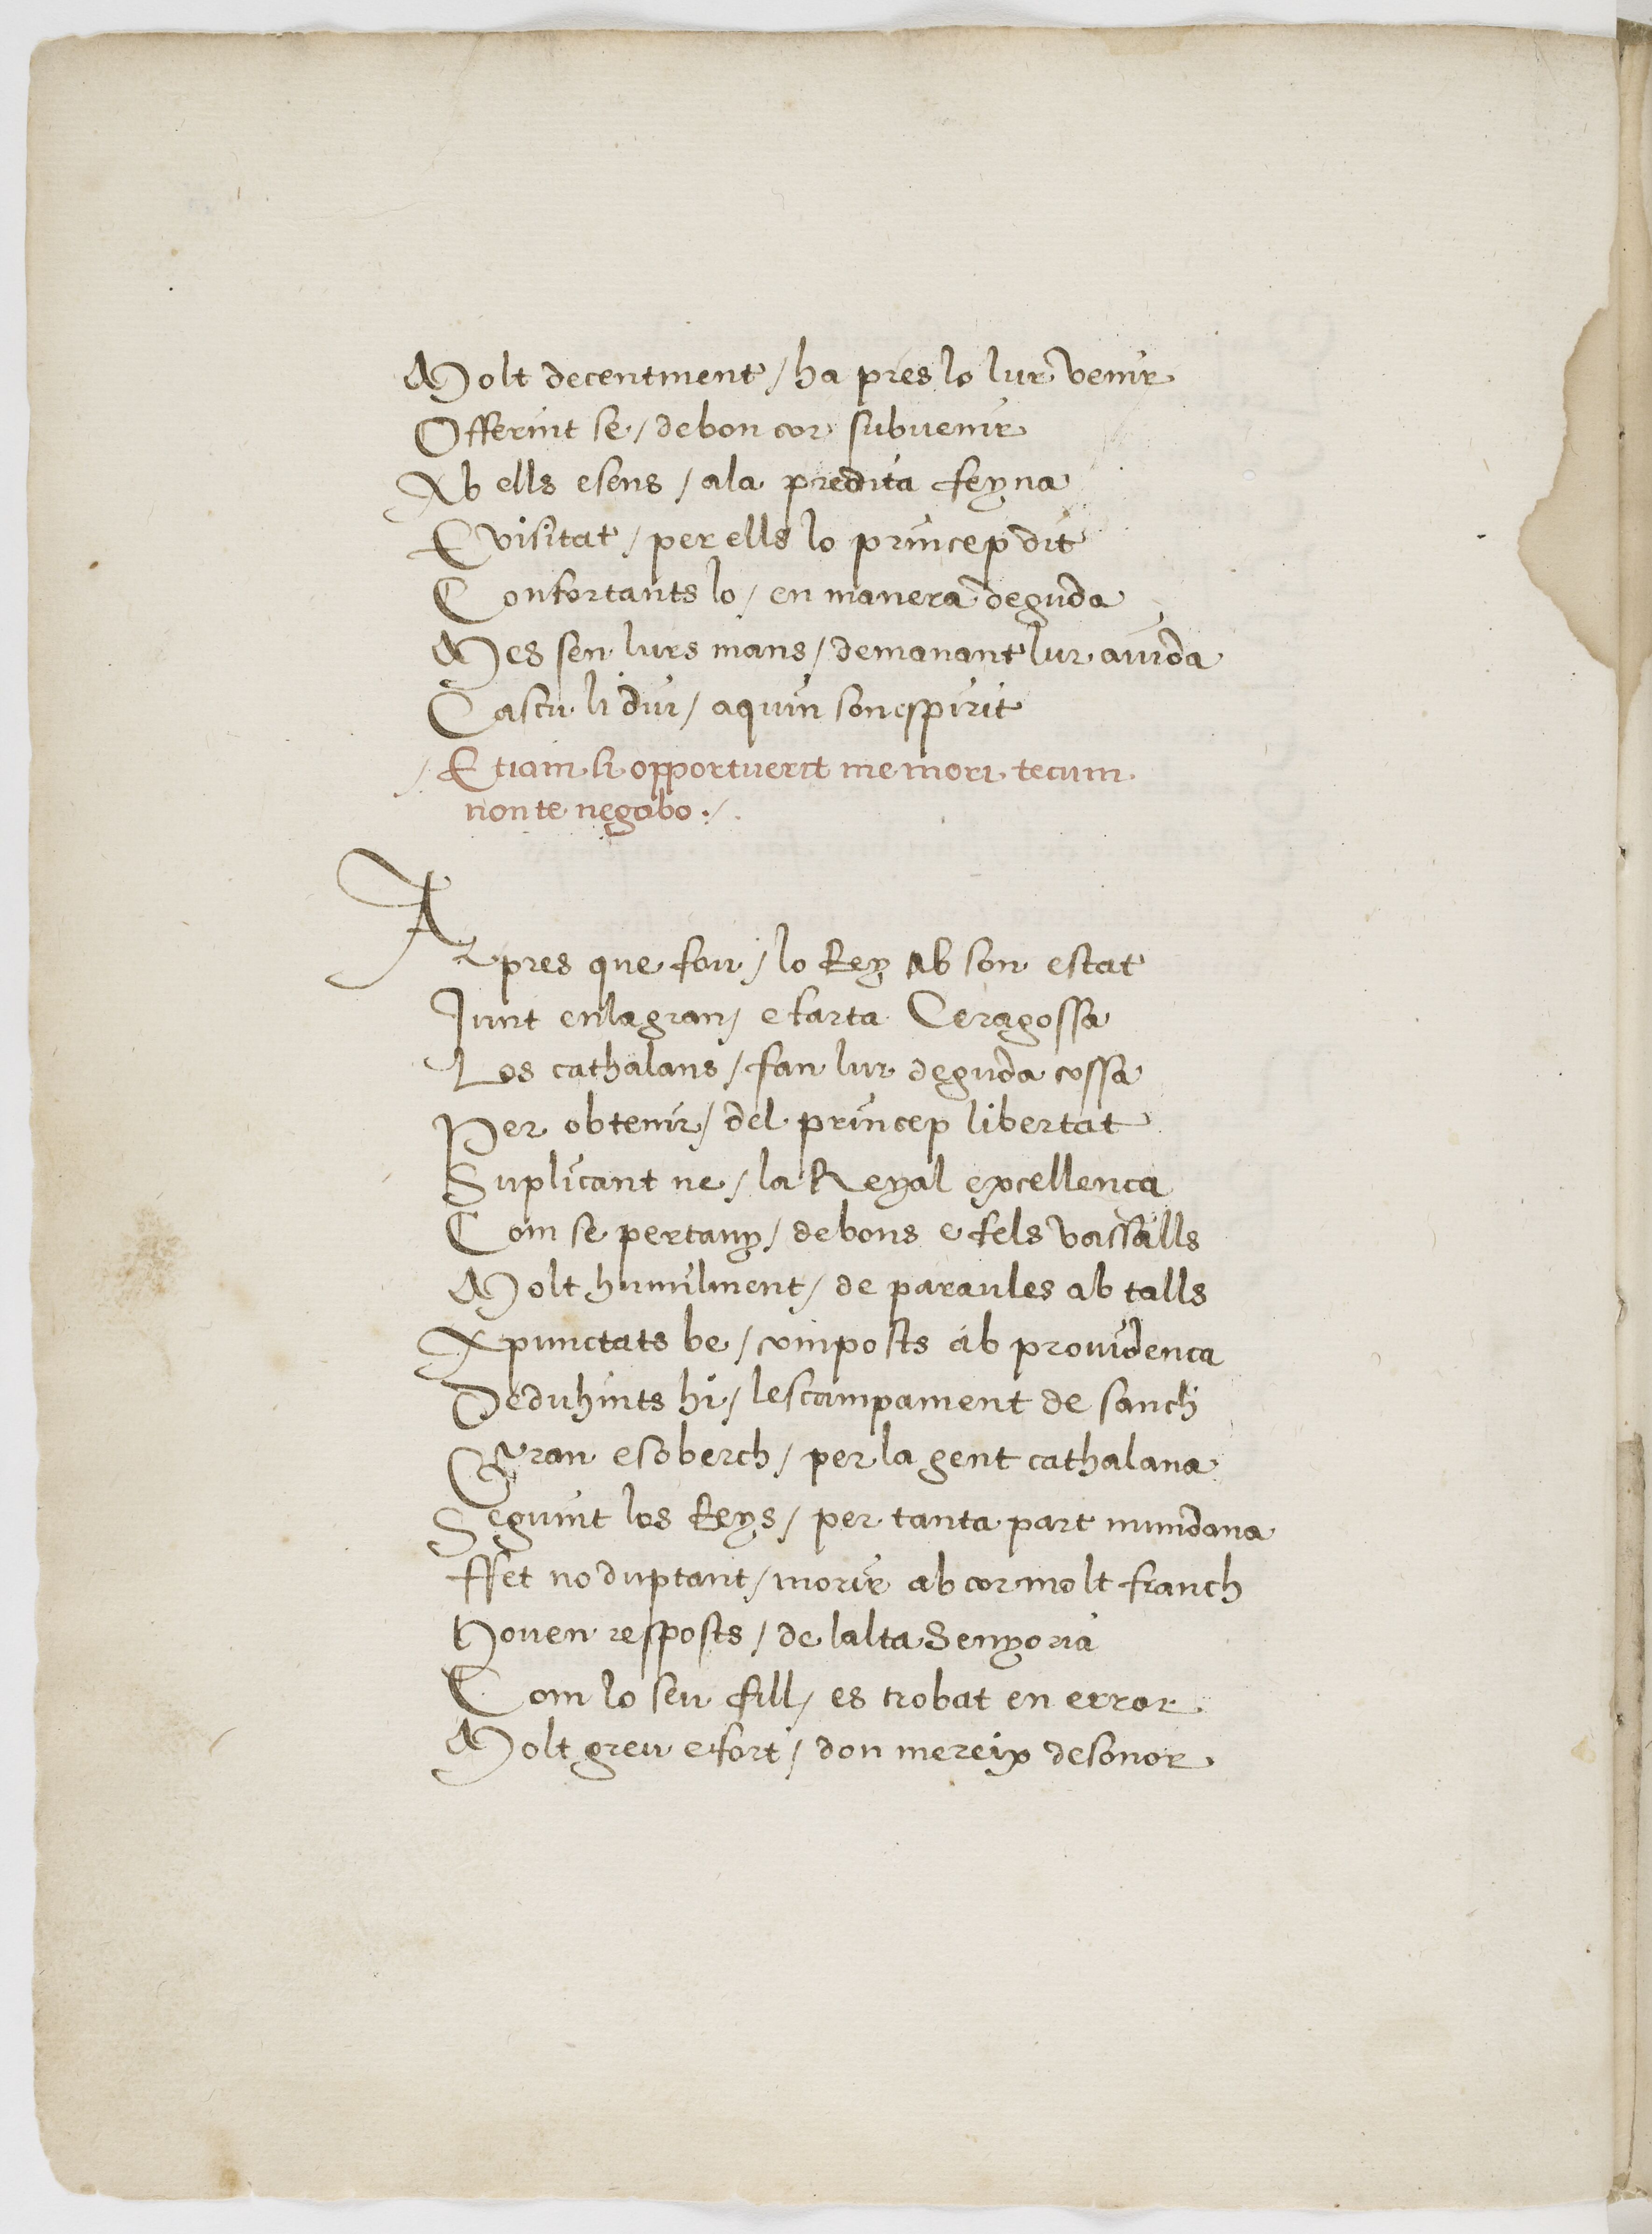 Molt decentment / ha pres lo lur venir
Offerint se / de bon cor subvenir
Ab ells esens / ala predita feyna
E visitat / per ells lo princep dit
Confortants lo / en manera deguda
Mes sen lurs mans / demanant lur aiuda
Cascu li dui / aquin son espirit
/ Etiam si opportuerit me mori tecum
non te negabo ./.
Apres que fou / lo Rey ab son estat
Junt enlagran / e farta Ceragossa
Los cathalans / fan lur deguda cossa
Per obtenir / del princep libertat
Suplicant ne / la Reyal excellenca
Com se pertany / de bons e fels vassalls
Molt humilment / de paraules ab talls
Apunctats be / composts ab providenca
Deduhints hi / lescampament de sanch
Gran e soberch / per la gent cathalana
Seguint los Reys / per tanta part mundana
ffet no duptant / morir ab cor molt franch
Hoven resposts / de lalta Senyoria
Com lo seu fill / es trobat en error
Molt greu e fort / don mereix desonor